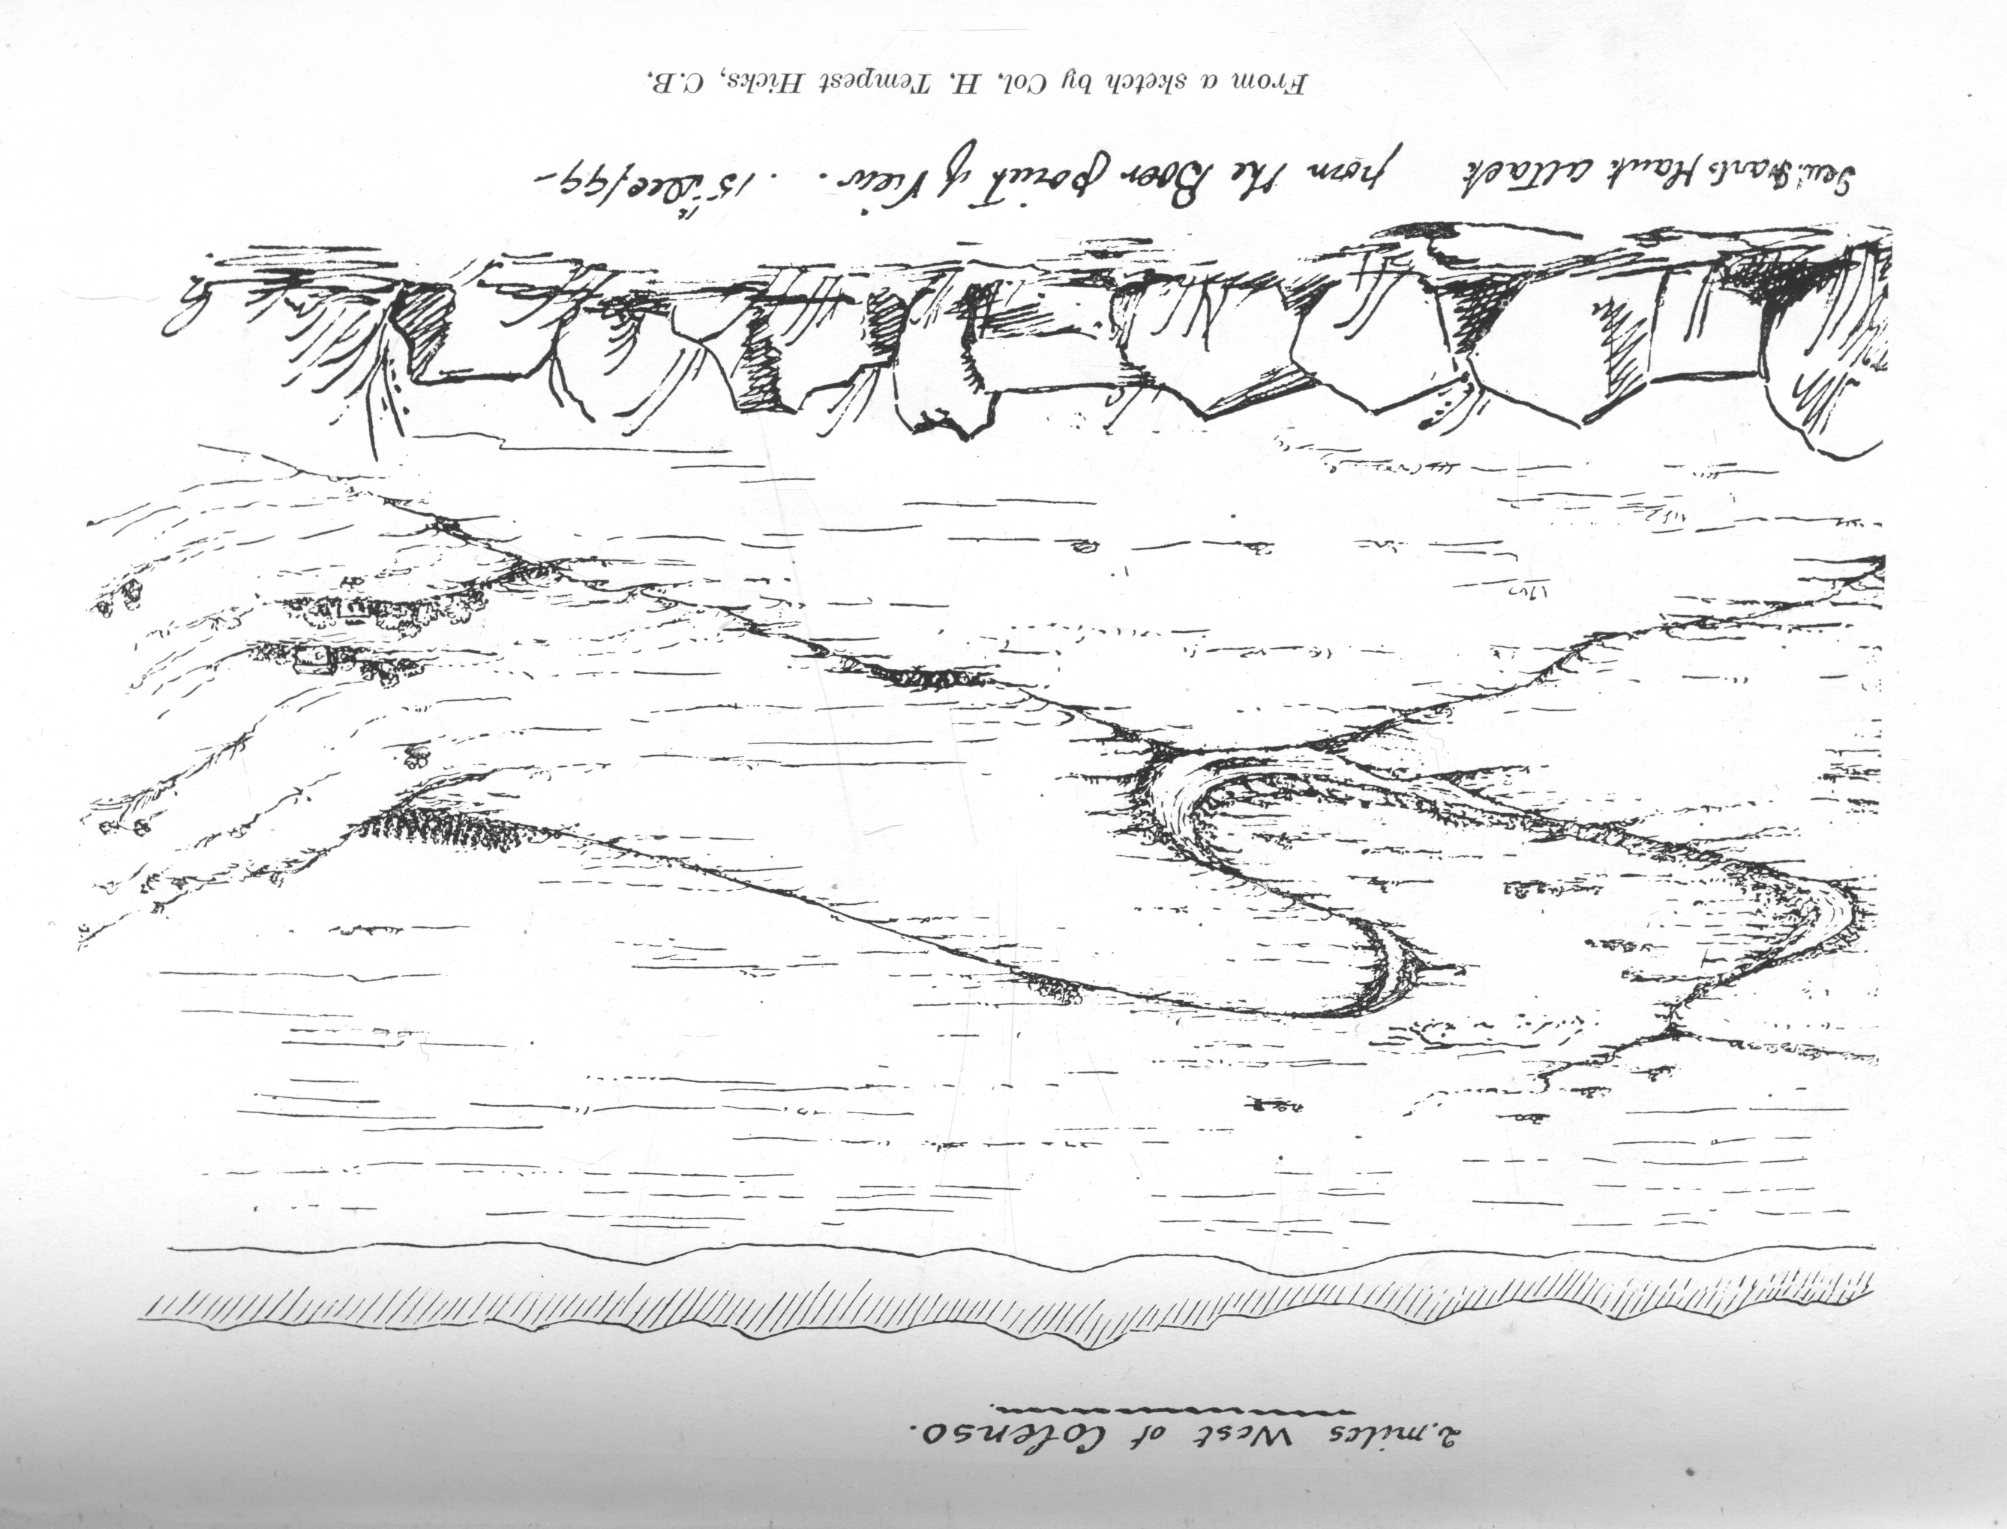 2 miles West of Colenso.
Genl. Harts Flank attack from the Boer point of View. 15th Dec/99-
From a sketch by Col. H. Tempest Hicks, C.B.